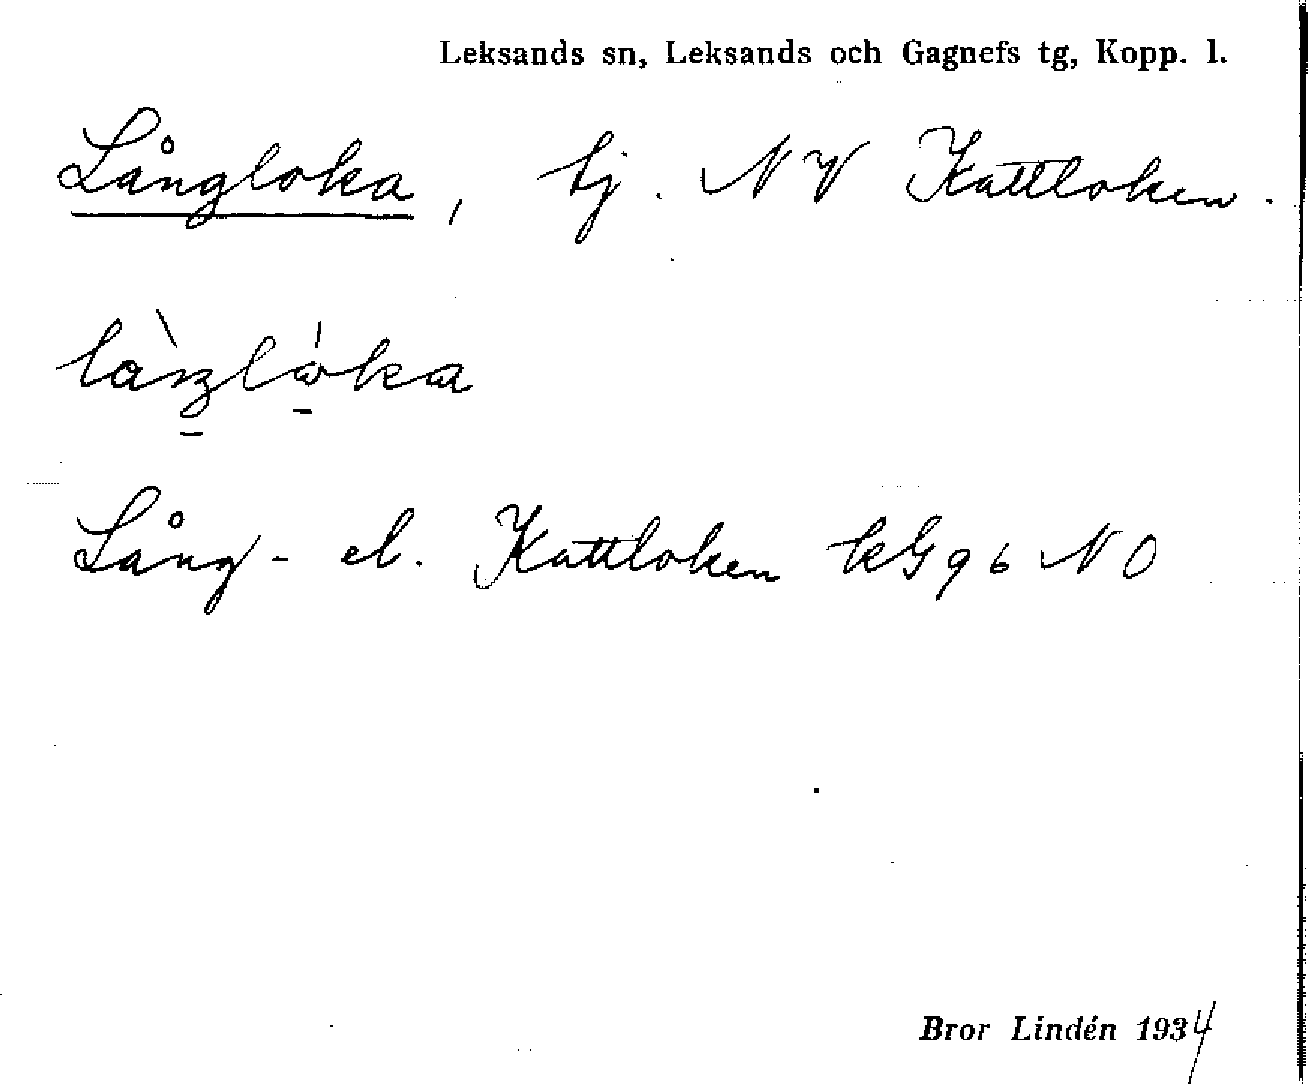 Leksands sn, Leksands och Gagnefs tg, Kopp. l.
Långloka, tj. NV Kattloken.
Lång- el. Kattloken kG96 NO
Bror Lindén 1934